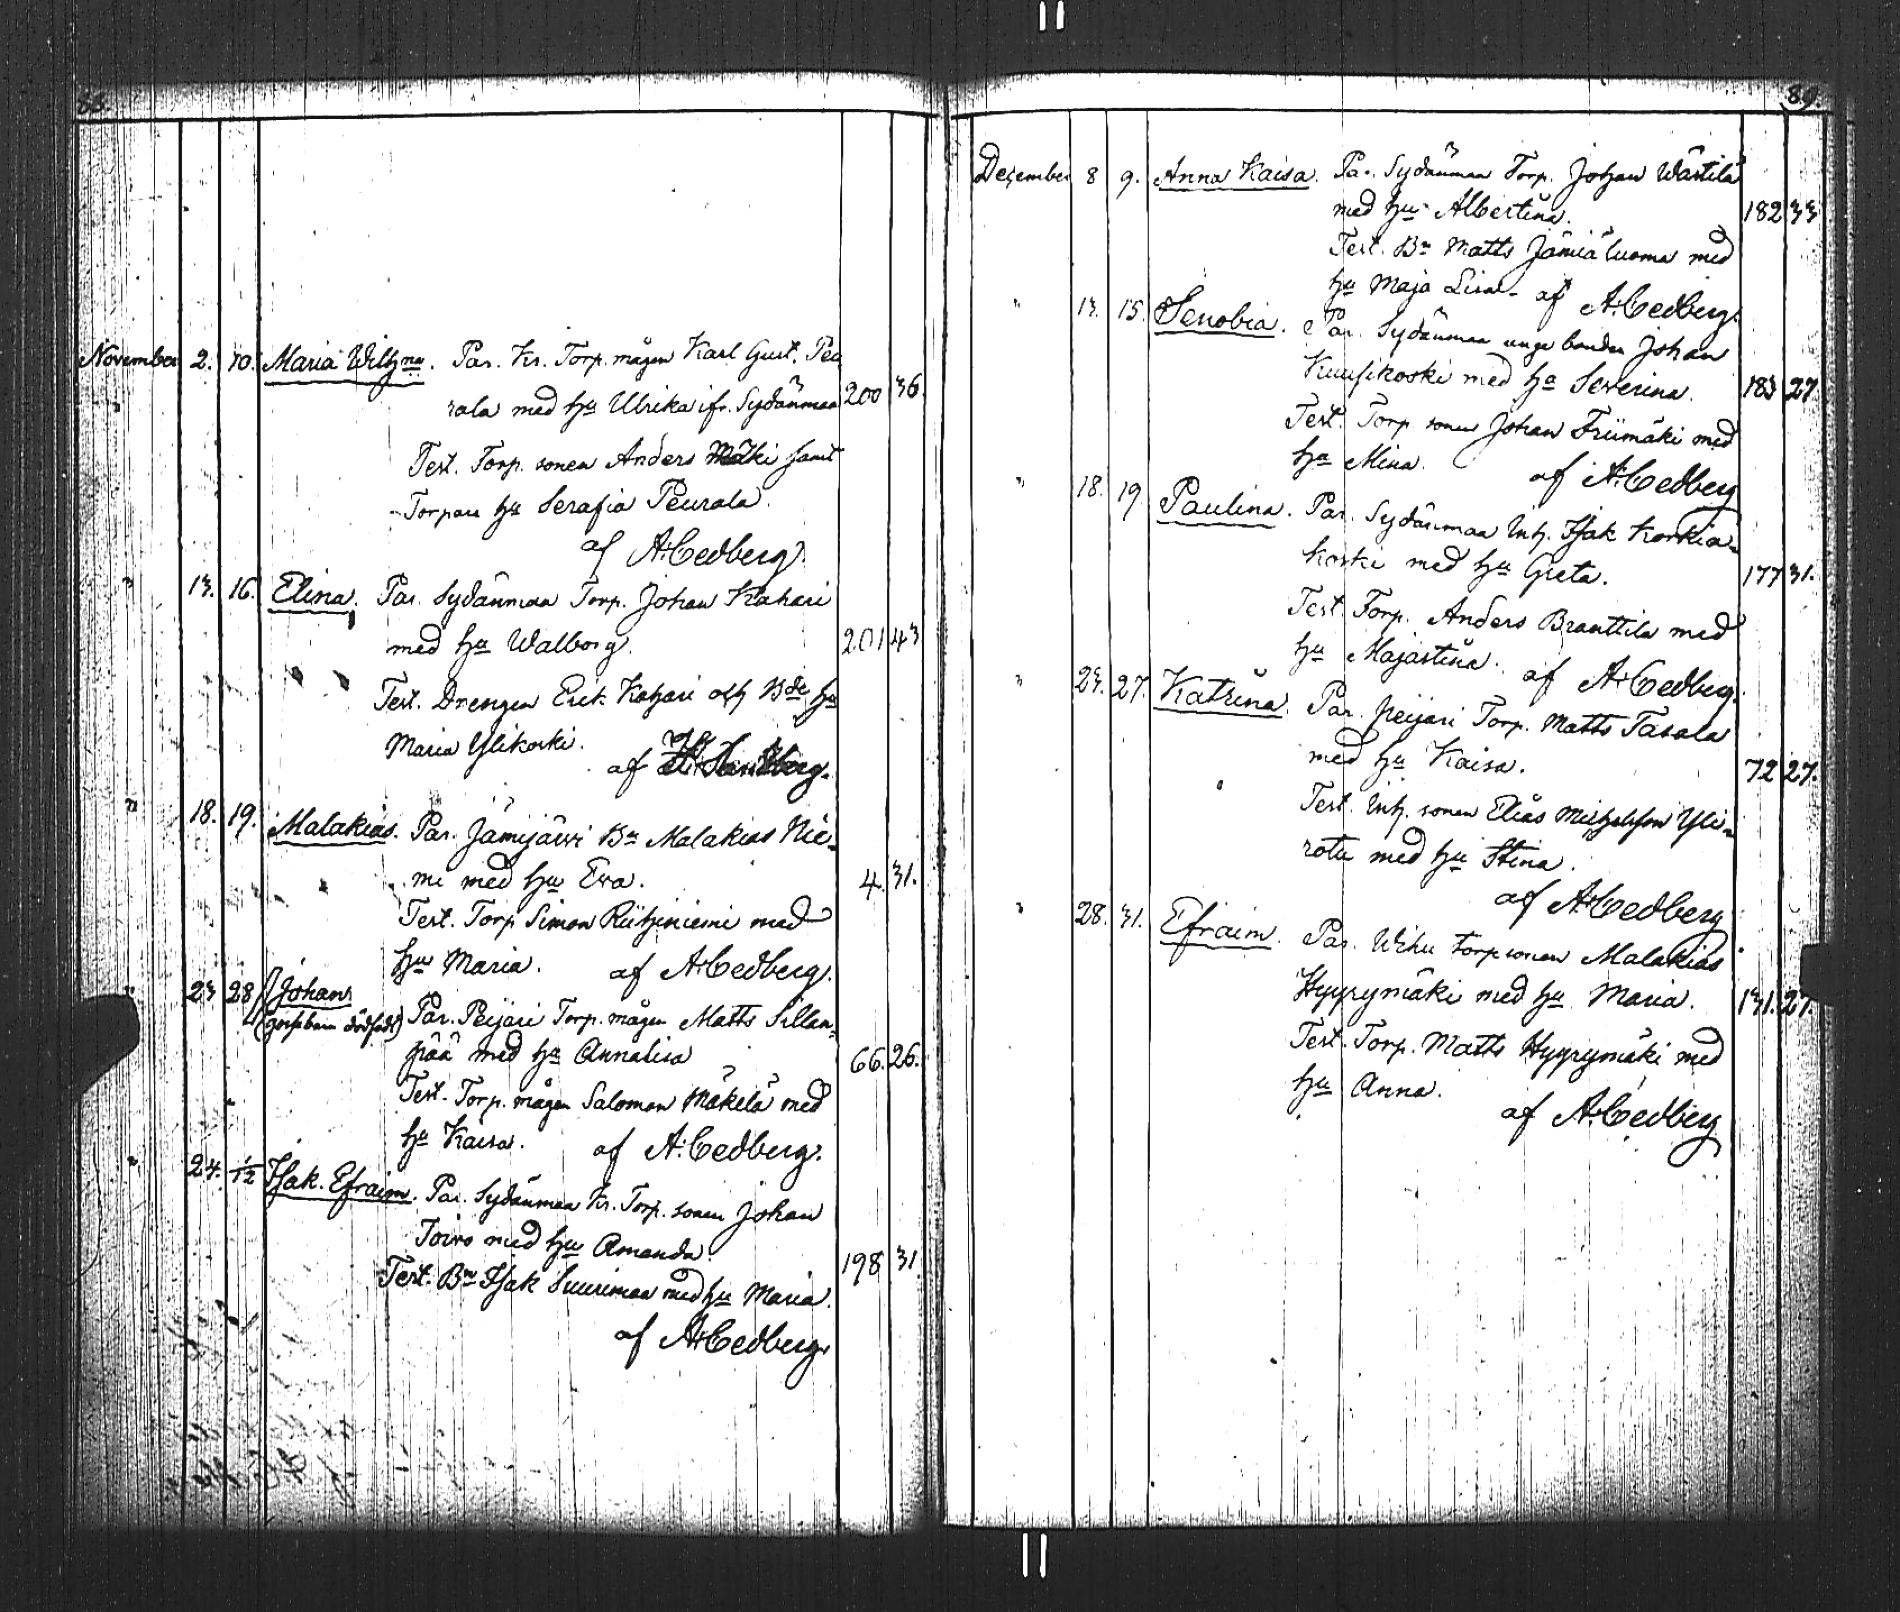 88.
November 2. 10. Maria Wilhna. Par. Kr. Torp. mågen Karl Gust. Peu
rala med hu Ulrika ifr. Sydänmaa 200 36.
Test. Torp. sonen Anders Mäki samt
Torpare hu Serafia Peurala.
af A. Cedberg.
" 13. 16. Elina. Par. Sydänmaa Torp. Johan Kahari
med hu Walborg. 201 43
Test. Drengen Erik Kahari och Bde hu
Maria Ylikoski.
af
" 18. 19. Malakias. Par. Jämijärvi Bn Malakias Nie-
mi med hu Eva. 4. 31.
Test. Torp Simon Riihiniemi med
hu Maria. af A. Cedberg.
" 23 28 Johan
(gossebarn dödfödt) Par. Peijari Torp. mågen Matts Sillan-
pää med hu Annalisa 66. 26.
Test. Torp. mågen Salomon Mäkelä med
hu Kaisa. af A. Cedberg.
" 24. 1/12 Isak Efraim. Par. Sydänmaa Kr. Torp. sonen Johan
Toivo med hu Amanda. 198 31
Test. Bn Isak Suurimaa med hu Maria.
af A. Cedberg.
89.
December 8 9. Anna Kaisa. Par. Sydänmaa Torp. Johan Wästilä
med hu Albertina. 182 33
Test. Bn Matts Jämiäluoma med
hu Maja Lisa. af A. Cedberg.
" 13. 15. Senobia. Par. Sydänmaa unge bonden Johan
Kuusikoski med hu Severina. 183 27.
Test. Torp sonen Johan Friimäki med
hu Mina. af A. Cedberg
" 18. 19. Paulina. Par. Sydänmaa Inh. Isak Korkia-
koski med hu Greta. 177 31.
Test. Torp. Anders Branttila med
hu Majastina. af A. Cedberg.
" 23. 27. Katrina. Par. Peijari Torp. Matts Tasala
med hu Kaisa. 72 27.
Test. Inh. sonen Elias Michelsson Yli-
rotu med hu Stina.
af A. Cedberg
" 28. 31. Efraim. Par. Wihu torpsonen Malakias
Hyyrymäki med hu Maria. 131. 27.
Test. Torp. Matts Hyyrymäki med
hu Anna.
af A. Cedberg